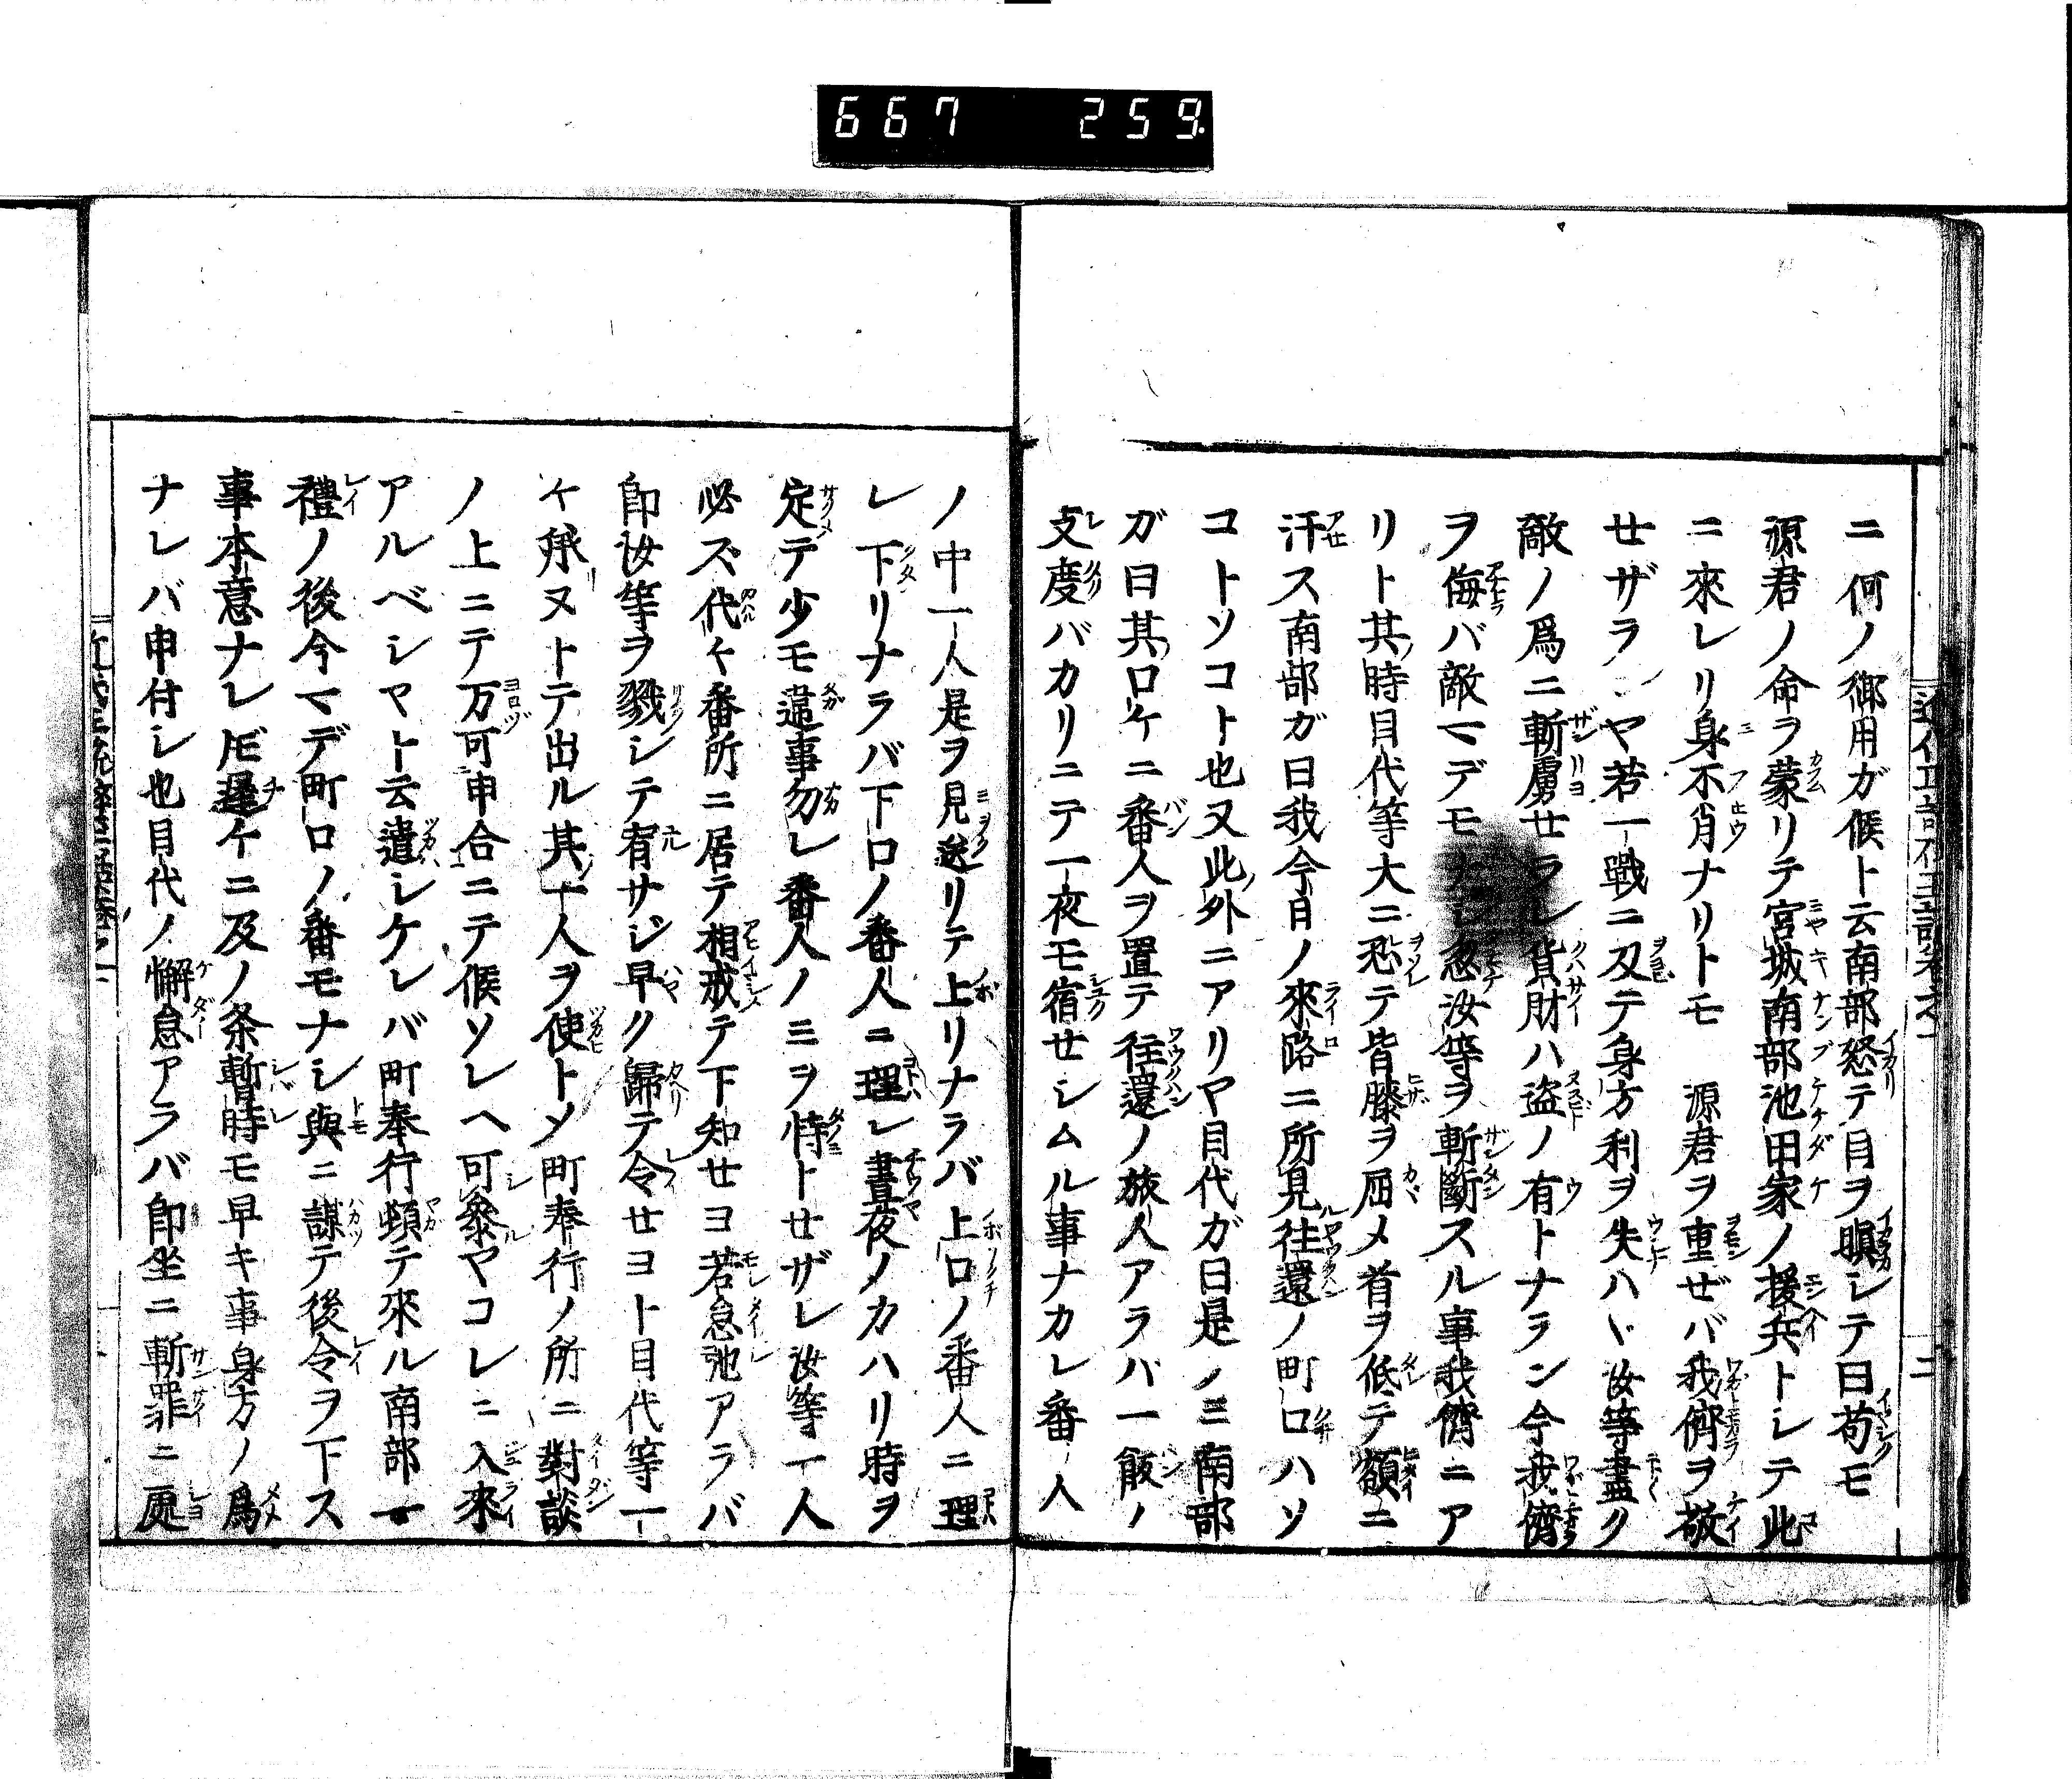 667 259.
ニ何ノ御用ガ候ト云南部怒テ目ヲ瞋シテ曰苟モ
源君ノ命ヲ蒙リテ宮城南部池田家ノ援兵トシテ此
ニ來レリ身不肖ナリトモ 源君ヲ重ゼバ我儕ヲ敬
せザランヤ若一戰ニ及テ身方利ヲ失ハヾ汝等盡ク
敵ノ爲ニ斬虜せラレ貨財ハ盗ノ有トナラン今我儕
ヲ侮バ敵マデモナシ忽汝等ヲ斬斷スル事我儕ニア
リト其時目代等大ニ恐テ皆膝ヲ屈メ首ヲ低テ額ニ
汗ス南部ガ曰我今日ノ來路ニ所見往還ノ町口ハソ
コトソコト也又此外ニアリヤ目代ガ曰是ノミ南部
ガ曰其口ケニ番人ヲ置テ往還ノ旅人アラバ一飯ノ
支度バカリニテ一夜モ宿せシムル事ナカレ番人
ノ中一人是ヲ見送リテ上リナラバ上口ノ番人ニ理
レ下リナラバ下口ノ番人ニ理レ晝夜ノカハリ時ヲ
定テ少モ違事勿レ番人ノミヲ恃トせザレ汝等一人
必ズ代ケ番所ニ居テ相戒テ下知せヨ若怠弛アラバ
即汝等ヲ戮シテ宥サジ早ク歸テ令せヨト目代等一
ケ承ヌトテ出ル其一人ヲ使トソ町奉行ノ所ニ對談
ノ上ニテ万可申合ニテ候ソレヘ可參ヤコレニ入來
アルベシヤト云遣シケレバ町奉行頓テ來ル南部一
禮ノ後今マデ町口ノ番モナシ與ニ謀テ後令ヲ下ス
事本意ナレ𪜈遲ケニ及ノ条暫時モ早キ事身方ノ爲
ナレバ申付シ也目代ノ懈怠アラバ即坐ニ斬罪ニ處